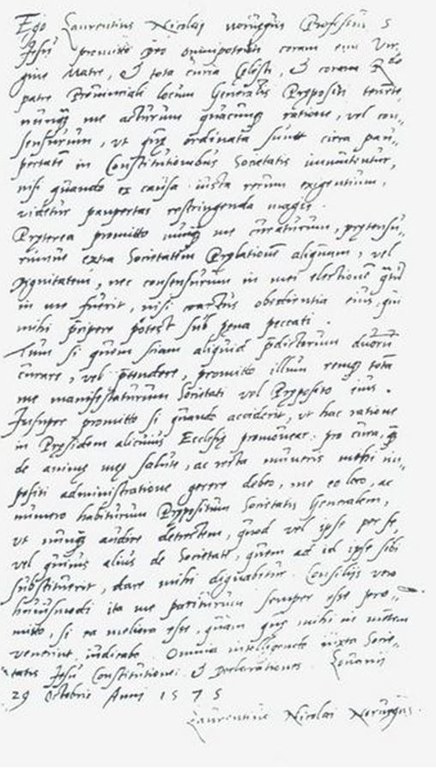 Ego Laurentius Nicolai norvegus Professus S
Jesu promitto Deo omnipotenti coram eius Vir-
gine Matre, & tota curia Celesti, & coram Rdo
patre Provinciali locum Generalis Prepositi tenente,
nunq me acturum quacunq ratione, vel con-
sensurum, ut que ordinata sunt circa pau-
pertate in Constitutionibus Societatis immutentur,
nisi quando ex causa iusta rerum exigentium,
videtur paupertas restringenda magis.
Preterea promitto nunq me curaturum, pretensu-
rumve extra Societatem Prelatione aliquam, vel
Dignitatem, nec consensurum in mei electione qtu
in me fuerit, nisi coactus obedientia eius, qui
mihi precipere potest sub pena peccati.
Tum si quem sciam aliquid predictorum duorum
curare, vel pretendere, promitto illum remq tota
me manifestaturum Societati vel Preposito eius.
Insuper promitto si quando acciderit, ut hac ratione
in Presidem alicuius Ecclesie promovear: pro cura, q
de animae meae salute, ac recta muneris mihi im-
positi administratione gerere debeo, me eo loco, ac
numero habiturum Prepositum Societatis Generalem,
ut nunq audire detrectem, quod vel ipse per se,
vel quivis alius de Societate, quem ad id ipse sibi
substituerit, dare mihi dignabitur. Consilijs vero
huiusmodi ita me pariturum semper esse pro-
mitto, si ea meliora esse, quam que mihi in mentem
venerint, iudicabo. Omnia intelligendo iuxta Socie-
tatis Jesu Constitutiones & Declarationes. Lovanii
29 Octobris Anni 1575
Laurentius Nicolai Norvegus.